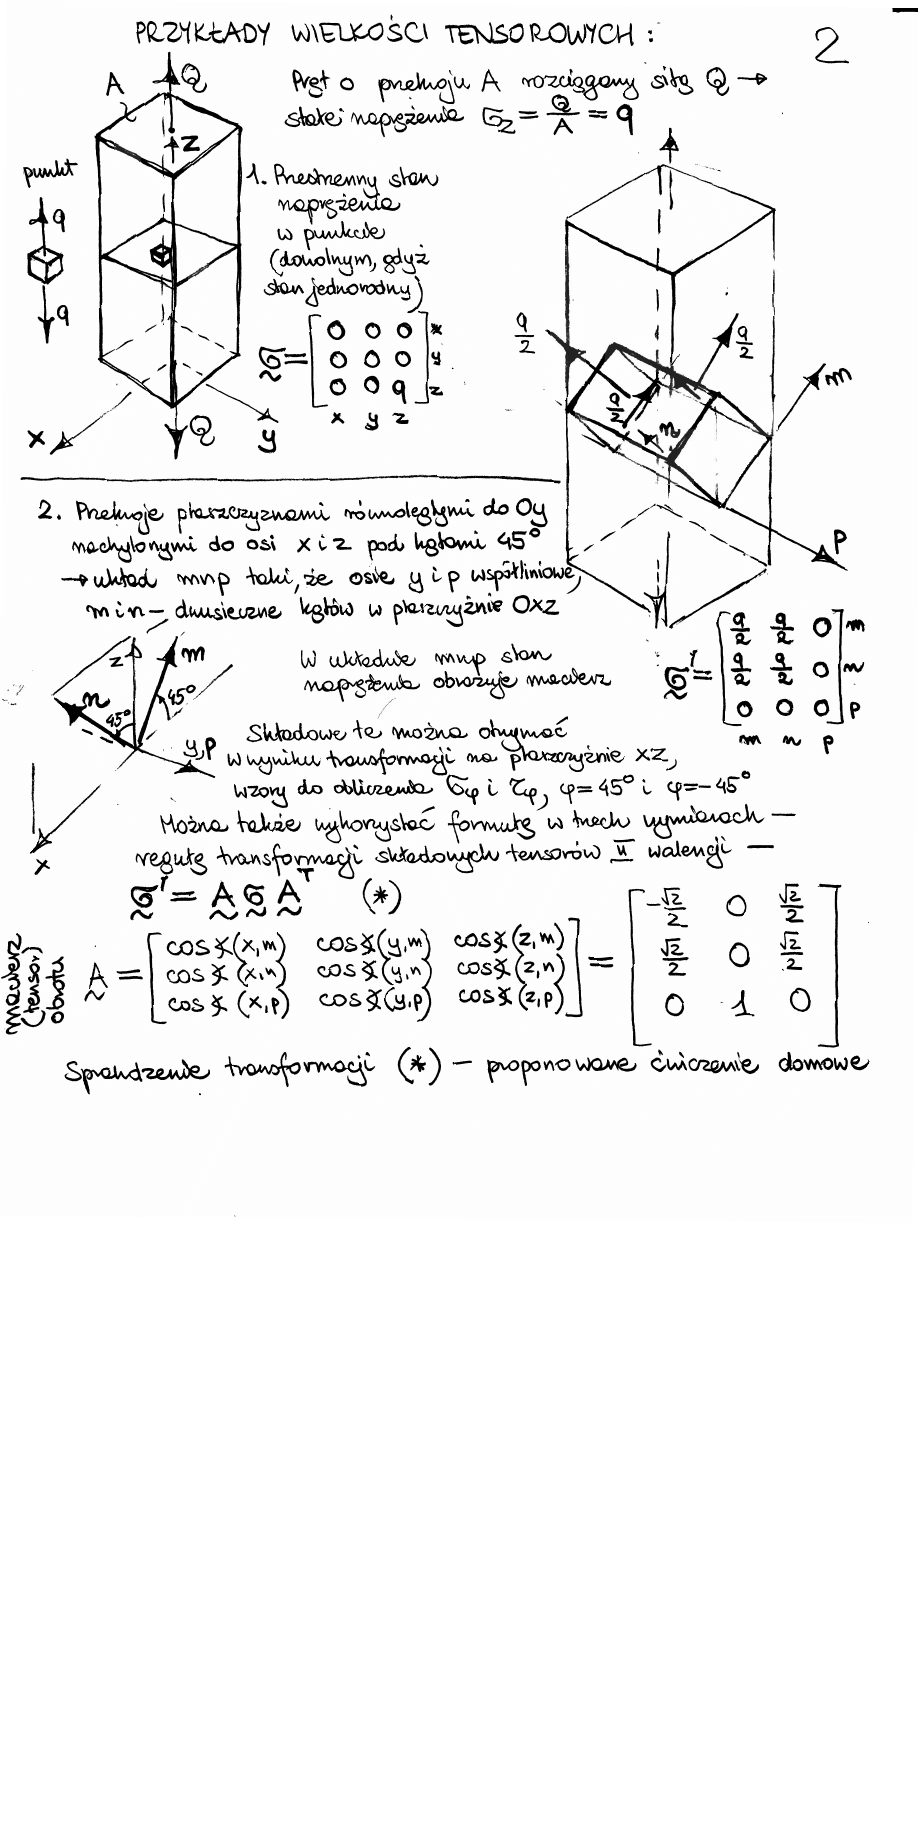 PRZYKŁADY WIELKOŚCI TENSOROWYCH :
2
Pręt o przekroju A rozciągany siłą Q →
stałe naprężenia σz = Q/A = q
A
Q
z
punkt
q
q
1. Przestrzenny stan
naprężenia
w punkcie
(dowolnym, gdyż
stan jednorodny)
σ = [ 0 0 0 ] x
0 0 0 y
0 0 q z
x y z
x
Q
y
q/2
q/2
q/2
m
n
p
2. Przekroje płaszczyznami równoległymi do Oy
nachylonymi do osi x i z pod kątami 45°
→ układ mnp taki, że osie y i p współliniowe,
m i n – dwusieczne kątów w płaszczyźnie Oxz
z
m
n
45°
45°
y,p
x
W układzie mnp stan
naprężenia obrazuje macierz
σ' = [ q/2 q/2 0 ] m
q/2 q/2 0 n
0 0 0 p
m n p
Składowe te można otrzymać
w wyniku transformacji na płaszczyźnie xz,
wzory do obliczenia σφ i τφ, φ=45° i φ=-45°
Można także wykorzystać formułę w trzech wymiarach –
regułę transformacji składowych tensorów II walencji –
σ' = A σ Aᵀ (*)
macierz
(tensor)
obrotu
A = [ cos∢(x,m) cos∢(y,m) cos∢(z,m) ] = [ -√2/2 0 √2/2 ]
cos∢(x,n) cos∢(y,n) cos∢(z,n) √2/2 0 √2/2
cos∢(x,p) cos∢(y,p) cos∢(z,p) 0 1 0
Sprawdzenie transformacji (*) – proponowane ćwiczenie domowe